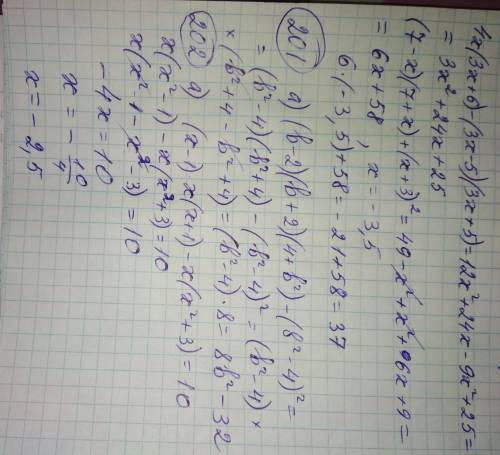 4x(3x+6)-(3x-5)(3x+5)=12x²+24x-9x²+25=
= 3x²+24x+25
(7-x)(7+x)+(x+3)²=49-x²+x²+6x+9=
= 6x+58, x=-3,5
6·(-3,5)+58=-21+58=37
201 а) (b-2)(b+2)(4+b²)-(b²-4)²=
=(b²-4)(b²+4)-(b²-4)²=(b²-4)×
×(b²+4-b²+4)=(b²-4)·8=8b²-32
202 а) (x-1)x(x+1)-x(x²+3)=10
x(x²-1)-x(x²+3)=10
x(x²-1-x²-3)=10
-4x=10
x=-10/4
x=-2,5